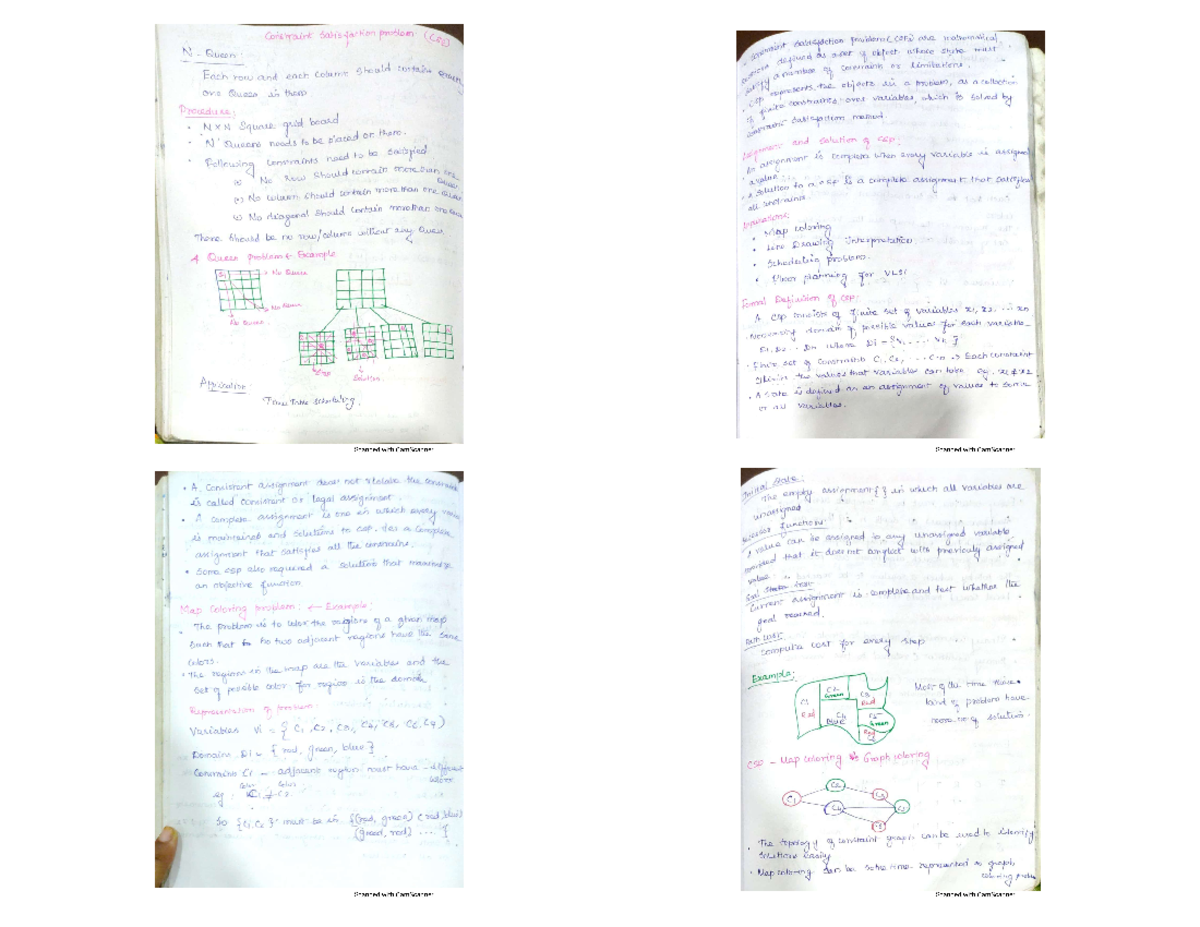 Constraint Satisfaction problem (CSP)
N - Queen:
Each row and each column should contain exactly
one Queen in them
Procedure:
• N×N Square grid board
• 'N' Queens needs to be placed on there.
• Following constraints need to be satisfied
No row should contain more than one
Queen
No column should contain more than one queen
No diagonal should contain more than one
There should be no row/column without any Queen.
4 Queen problem ← Example
→ No Queen
→ No Queen
No Queen
Solution
Application:
Time Table scheduling.
Scanned with CamScanner
Constraint Satisfaction problem (CSPs) are mathematical
defined as a set of object whose state must
satisfy a number of constraints or limitations.
• CSP represents the objects in a problem, as a collection
of finite constraints over variables, which is solved by
constraint satisfaction method.
Assignment and solution of CSP:
An assignment is complete when every variable is assigned
a value.
• A solution to a CSP is a complete assignment that satisfies
all constraints.
Applications:
• Map coloring
• Line Drawing Interpretation
• Scheduling problem.
• Floor planning for VLSI
Formal Definition of CSP:
A CSP consists of finite set of variables x1, x2, ... xn
• Nonempty domain of possible values for each variable
D1, D2 ... Dn where Di = {v1, .... vk}
• Finite set of constraints C1, C2, ... Cm → Each constraint
the values that variables can take eg, x1 ≠ x2
• A state is defined as an assignment of values to some
or all variables.
Scanned with CamScanner
• A Consistent assignment does not violate the constraint
is called consistent or legal assignment.
• A complete assignment is one in which every
is maintained and solutions to CSP is a complete
assignment that satisfies all the constrains.
• Some CSP also required a solution that maximize
an objective function
Map Coloring problem: ← Example:
• The problem is to color the regions of a given map
such that no two adjacent regions have the same
colors.
• The regions in the map are the variables and the
set of possible color for region is the domain
Representation of problem:
Variables Vi = { C1, C2, C3, C4, C5, C6, C7 }
Domains Di = { red, green, blue }
Constrains Ci - adjacent region must have different
colors
Color Color
eg: C1 ≠ C2
So {C1, C2} must be in {(red, green) (red, blue)
(green, red) .... }
Scanned with CamScanner
Initial State:
The empty assignment { } in which all variables are
unassigned
Successor functions:
A value can be assigned to any unassigned variable
provided that it does not conflict with previously assigned
value
Goal State test
Current assignment is complete and test whether the
goal reached.
Path cost:
Compute cost for every step
Example:
C1
Red
C2
Green
C3
Red
C4
Blue
C5
Green
Red
Most of the time these
kind of problem have
more no of solution.
CSP - Map Coloring Vs Graph coloring
C1
C2
C3
C4
• The topology of constraint graph can be used to identify
solutions easily
• Map coloring can be some time represented as graph
coloring problem
Scanned with CamScanner